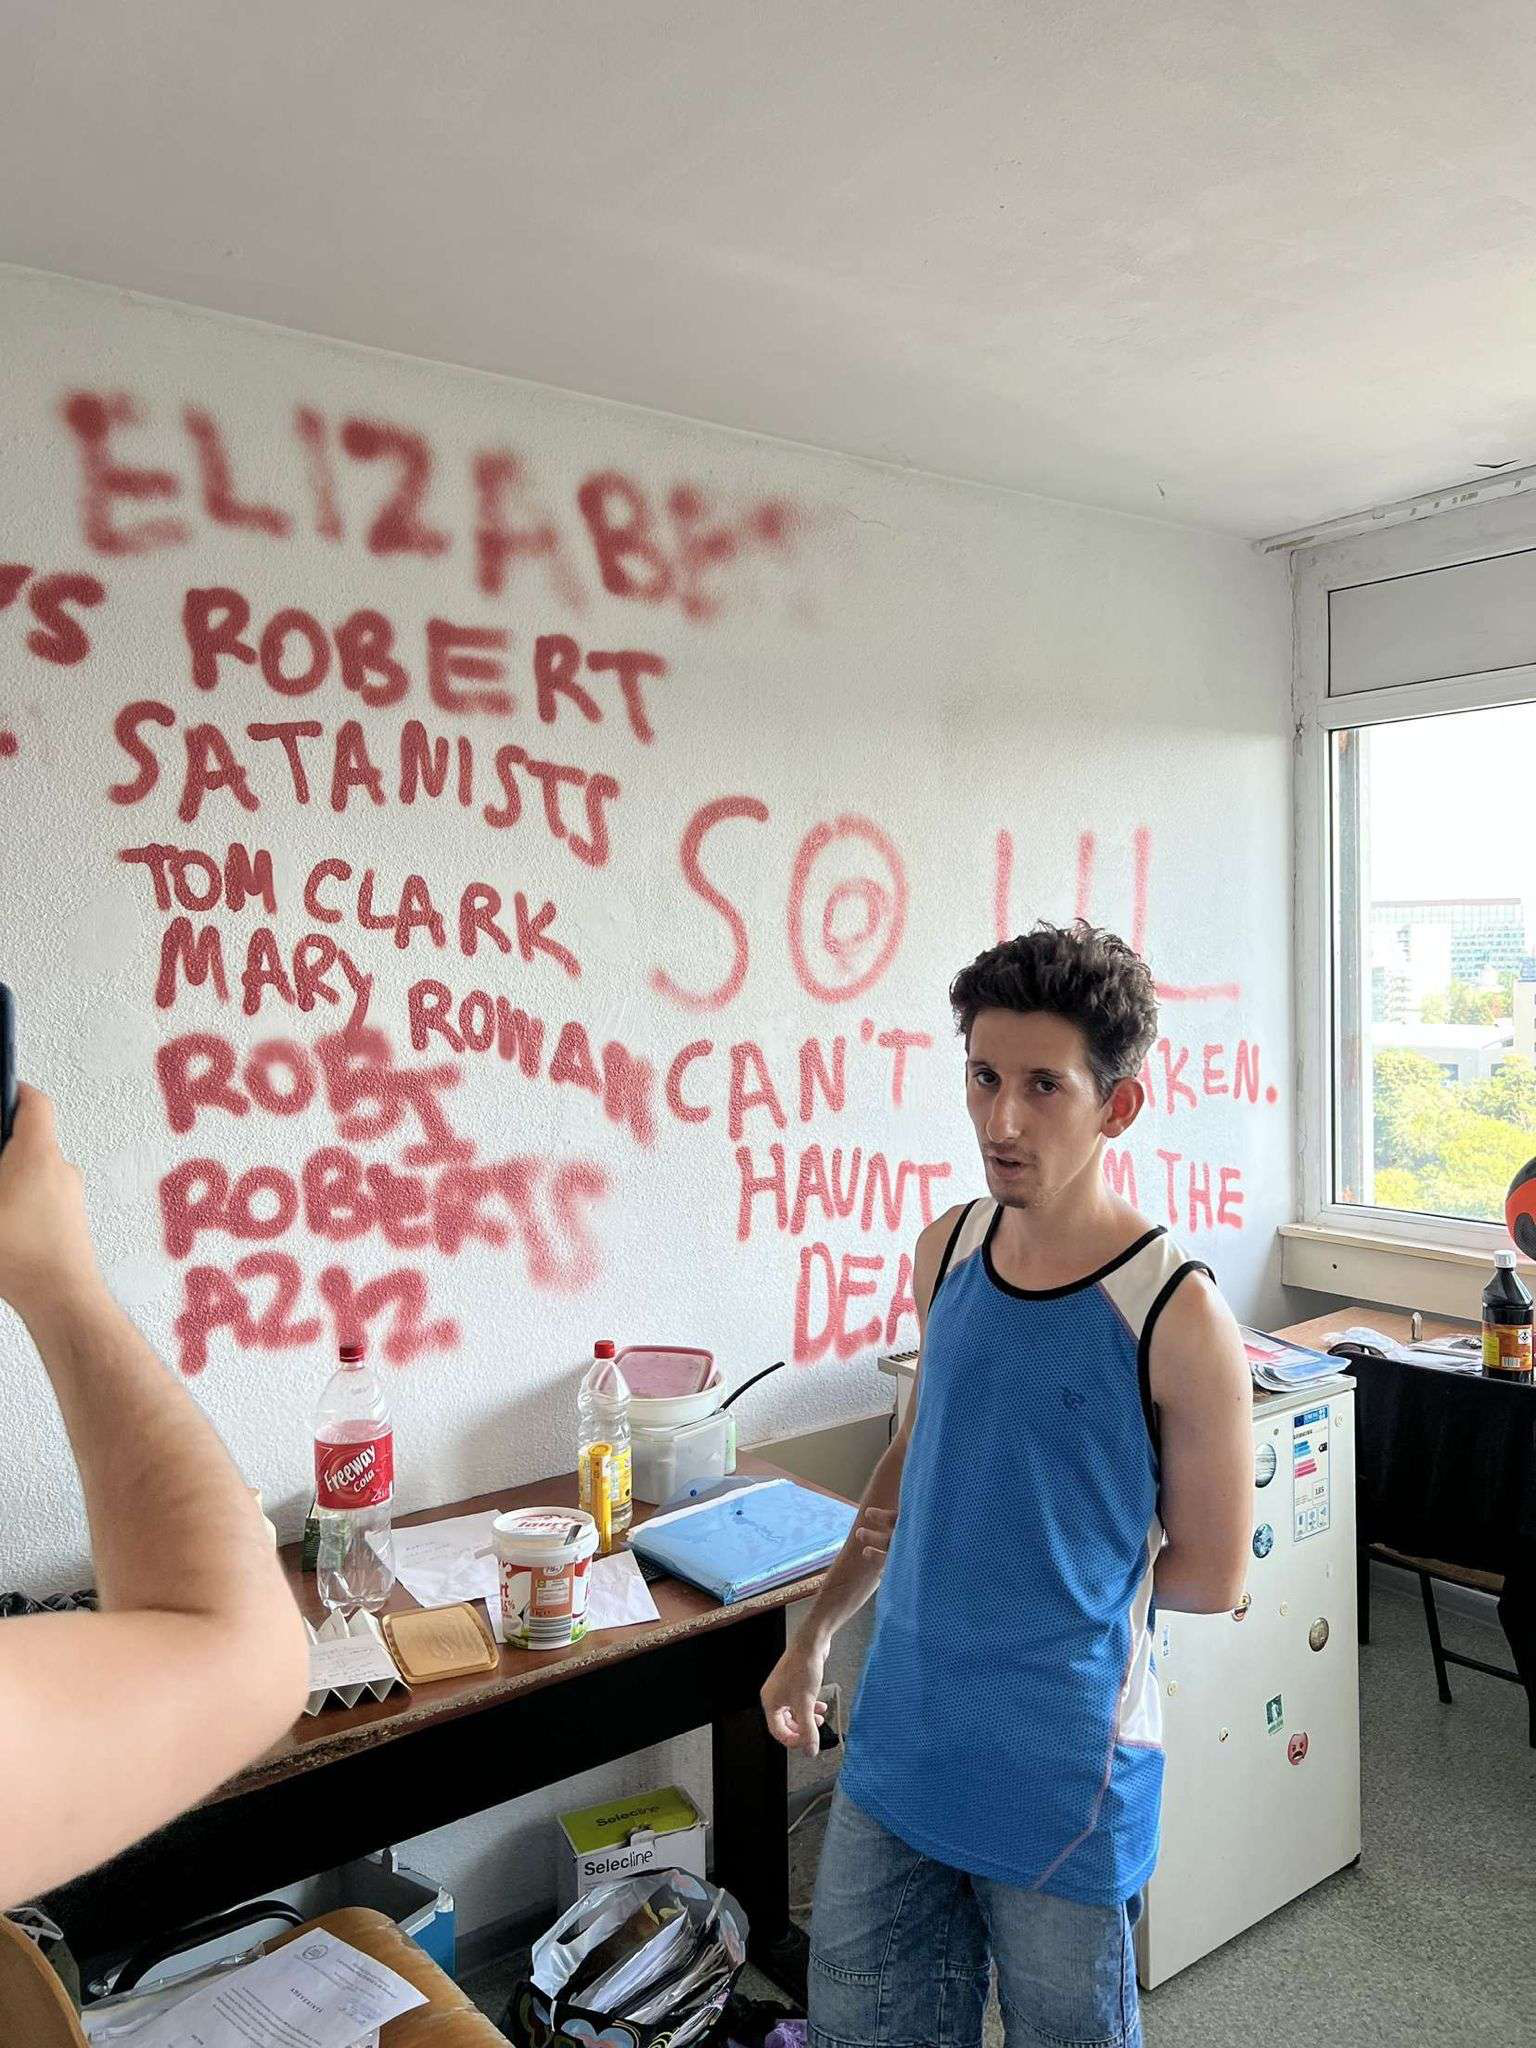 ELIZABET
YS ROBERT
SATANISTS
TOM CLARK
MARY ROWAN
ROBI
ROBERTS
AZIZ
SOUL
CAN'T AKEN.
HAUNT M THE
DEA
Freeway
Cola
Selecline
Selecline
ADEVERINTA